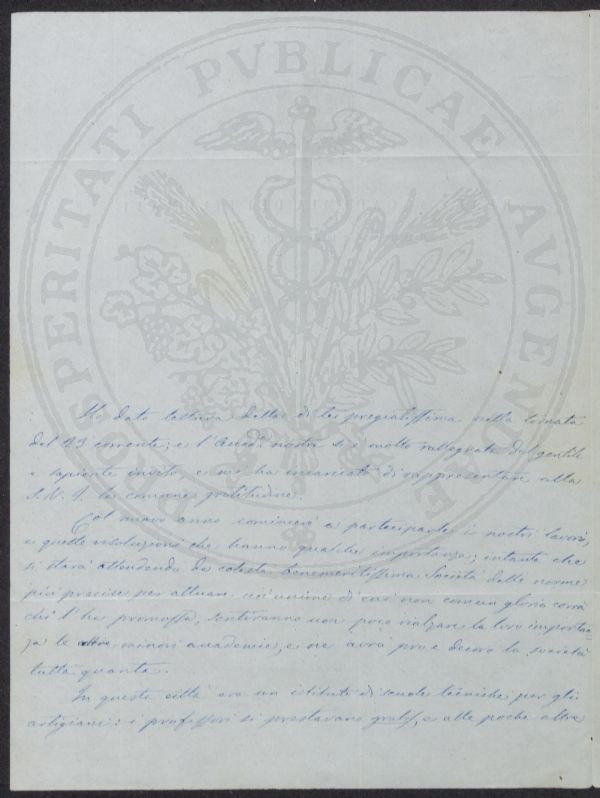 PROSPERITATI PVBLICAE AVGENDAE
Ho dato lettura della di lei pregiatissima nella tornata
del 23 corrente; e l'Accad.ª nostra si è molto rallegrata del gentile
e sapiente invito, e me ha incaricato di rappresentare alla
S. V. I. la comune gratitudine.
Col nuovo anno comincerò a parteciparle i nostri lavori,
e quelle risoluzioni che hanno qualche importanza; intanto che
si starà attendendo da cotesta benemeritissima Società delle norme
più precise per attuare un'unione di cui non comun gloria corrà
chi l'ha promossa, sentiranno non poco rialzare la loro importan
za le altre minori accademie, e ne avrà pro e decoro la società
tutta quanta.
In questa città era un istituto di scuole tecniche per gli
artigiani: i professori si prestavano gratis, e alle poche altre